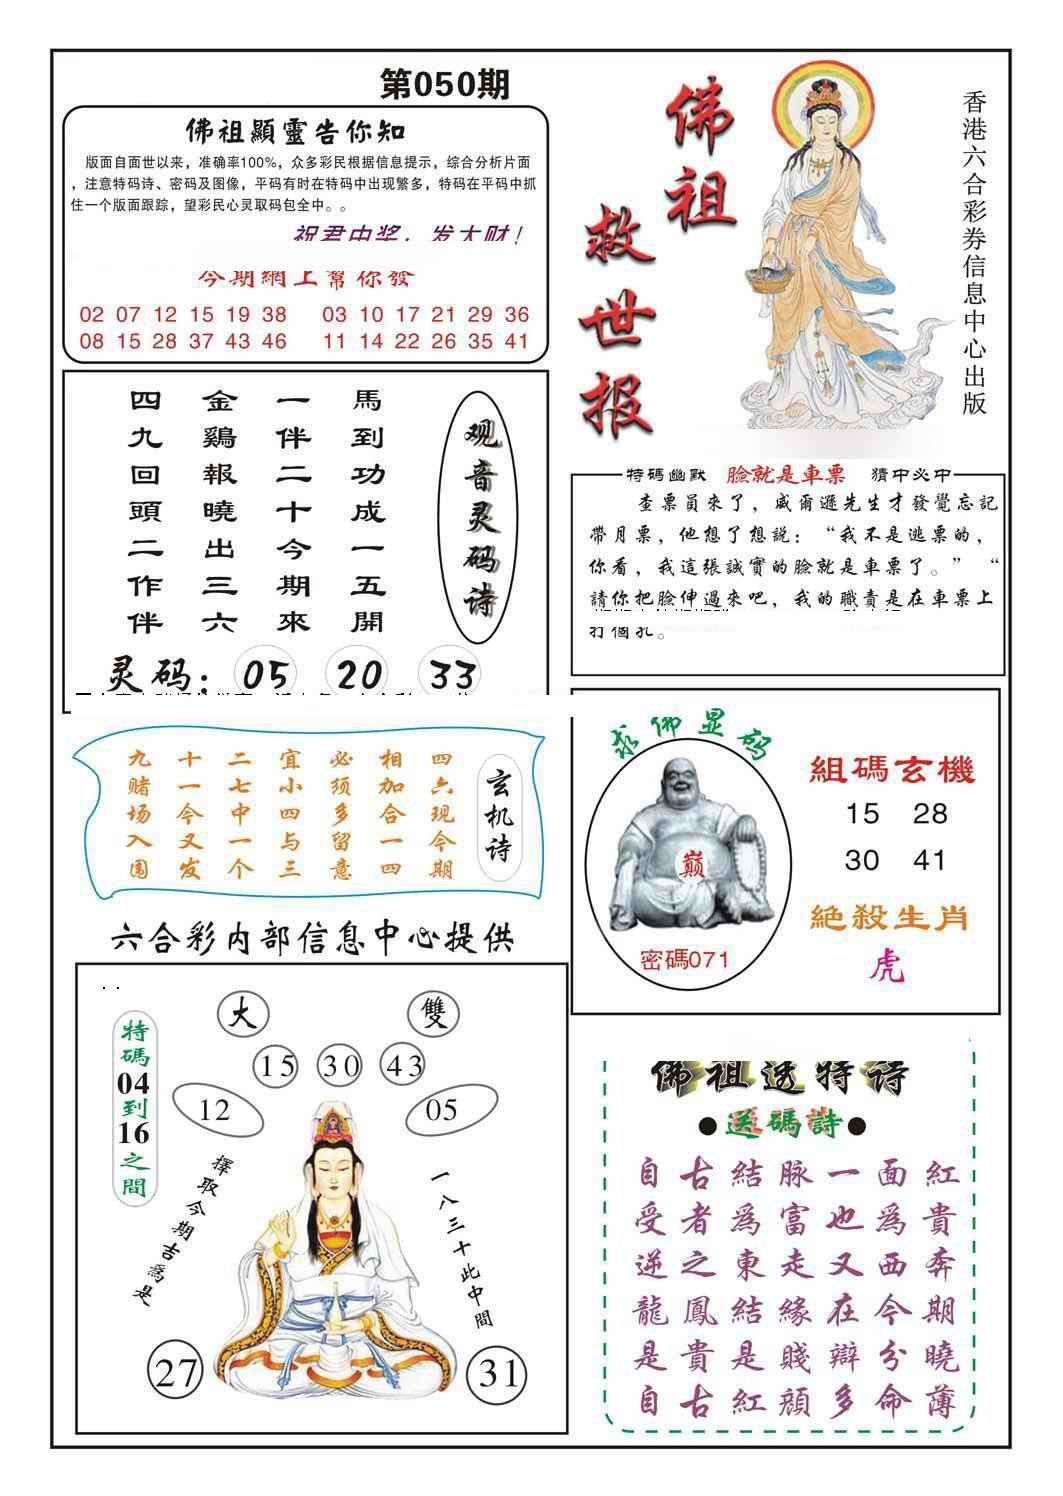 第050期
佛祖顯靈告你知
版面自面世以来，准确率100%，众多彩民根据信息提示，综合分析片面
，注意特码诗、密码及图像，平码有时在特码中出现繁多，特码在平码中抓
住一个版面跟踪，望彩民心灵取码包全中。。
祝君中奖，发大财！
今期網上幫你發
02 07 12 15 19 38 03 10 17 21 29 36
08 15 28 37 43 46 11 14 22 26 35 41
佛祖
救世报
香港六合彩券信息中心出版
观音灵码诗
馬到功成一五開
一伴二十今期來
金鷄報曉出三六
四九回頭二作伴
灵码：05 20 33
特碼幽默 臉就是車票 猜中必中
查票員來了，威爾遜先生才發覺忘記
帶月票，他想了想説：“我不是逃票的，
你看，我這張誠實的臉就是車票了。” “
請你把臉伸過來吧，我的職責是在車票上
打個孔。
玄机诗
四六现今期
相加合一四
必须多留意
宜小四与三
二七中一个
十一今又发
九赌场入围
求佛显码
巅
密碼071
組碼玄機
15 28
30 41
絶殺生肖
虎
六合彩内部信息中心提供
特碼04到16之間
大 雙
15 30 43
12 05
擇取今期吉爲是
一八三十此中間
27 31
佛祖透特诗
●送碼詩●
自古結脉一面紅
受者為富也為貴
逆之東走又西奔
龍鳳結緣在今期
是貴是賤辯分曉
自古紅顔多命薄